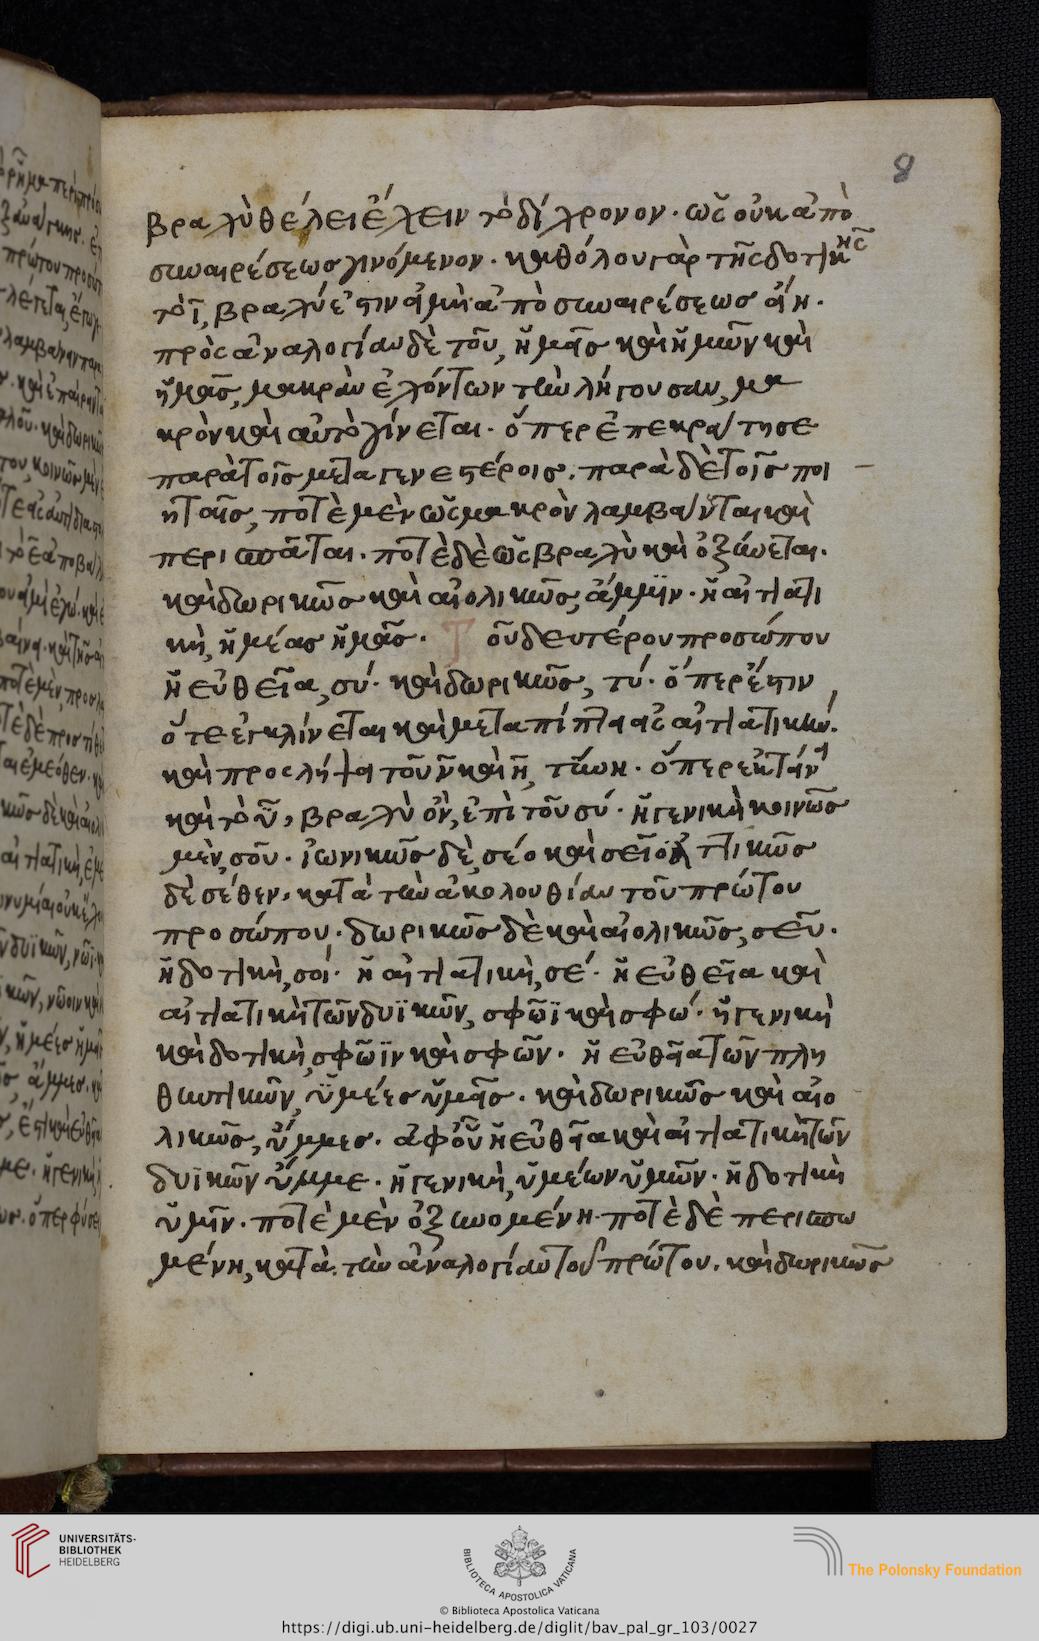 8
βραχὺ θέλει ἔχειν τὸ δίχρονον· ὡς οὐκ ἀπὸ
συναιρέσεως γινόμενον· καθόλου γὰρ τῆς δοτικῆς
τὸ ῑ, βραχύ ἐστιν εἰ μὴ ἀπὸ συναιρέσεως εἴη·
πρὸς ἀναλογίαν δὲ τοῦ, ἡμᾶς καὶ ἡμῶν καὶ
ἡμᾶς, μακρὰν ἐχόντων τὴν λήγουσαν, μα
κρὸν καὶ αὐτὸ γίνεται· ὅπερ ἐπεκράτησε
παρὰ τοῖς μεταγενεστέροις· παρὰ δὲ τοῖς ποι
ηταῖς, ποτὲ μὲν ὡς μακρὸν λαμβάνεται καὶ
περισπᾶται· ποτὲ δὲ ὡς βραχὺ καὶ ὀξύνεται·
καὶ δωρικῶς καὶ αἰολικῶς, ἄμμϊν· ἡ αἰτιατι
κὴ, ἡμέας ἡμᾶς· Τοῦ δευτέρου προσώπου
ἡ εὐθεῖα, σύ· καὶ δωρικῶς, τύ· ὅπερ ἐστὶν
ὅτε ἐγκλίνεται καὶ μεταπίπτει εἰς αἰτιατικήν·
καὶ προσλήψει τοῦ ν̄ καὶ η̄, τύνη· ὅπερ ἐκτείνει
καὶ τὸ ῡ, βραχὺ ὂν, ἐπὶ τοῦ σύ· ἡ γενικὴ κοινῶς
μὲν, σοῦ· ἰωνικῶς δὲ, σέο καὶ σεῖο· ἀττικῶς
δὲ σέθεν, κατὰ τὴν ἀκολουθίαν τοῦ πρώτου
προσώπου· δωρικῶς δὲ καὶ αἰολικῶς, σεῦ·
ἡ δοτικὴ, σοί· ἡ αἰτιατικὴ, σέ· ἡ εὐθεῖα καὶ
αἰτιατικὴ τῶν δυϊκῶν, σφῶϊ καὶ σφώ· ἡ γενικὴ
καὶ δοτικὴ, σφῶϊν καὶ σφῶν· ἡ εὐθεῖα τῶν πλη
θυντικῶν, ὑμέες ὑμεῖς· καὶ δωρικῶς καὶ αἰο
λικῶς, ὔμμες· ἀφ' οὗ ἡ εὐθεῖα καὶ αἰτιατικὴ τῶν
δυϊκῶν ὔμμε· ἡ γενικὴ, ὑμέων ὑμῶν· ἡ δοτικὴ
ὑμῖν· ποτὲ μὲν ὀξυνομένη· ποτὲ δὲ περισπω
μένη, κατὰ τὴν ἀναλογίαν τοῦ πρώτου· καὶ δωρικῶς
UNIVERSITÄTS-
BIBLIOTHEK
HEIDELBERG
BIBLIOTECA APOSTOLICA VATICANA
The Polonsky Foundation
© Biblioteca Apostolica Vaticana
https://digi.ub.uni-heidelberg.de/diglit/bav_pal_gr_103/0027